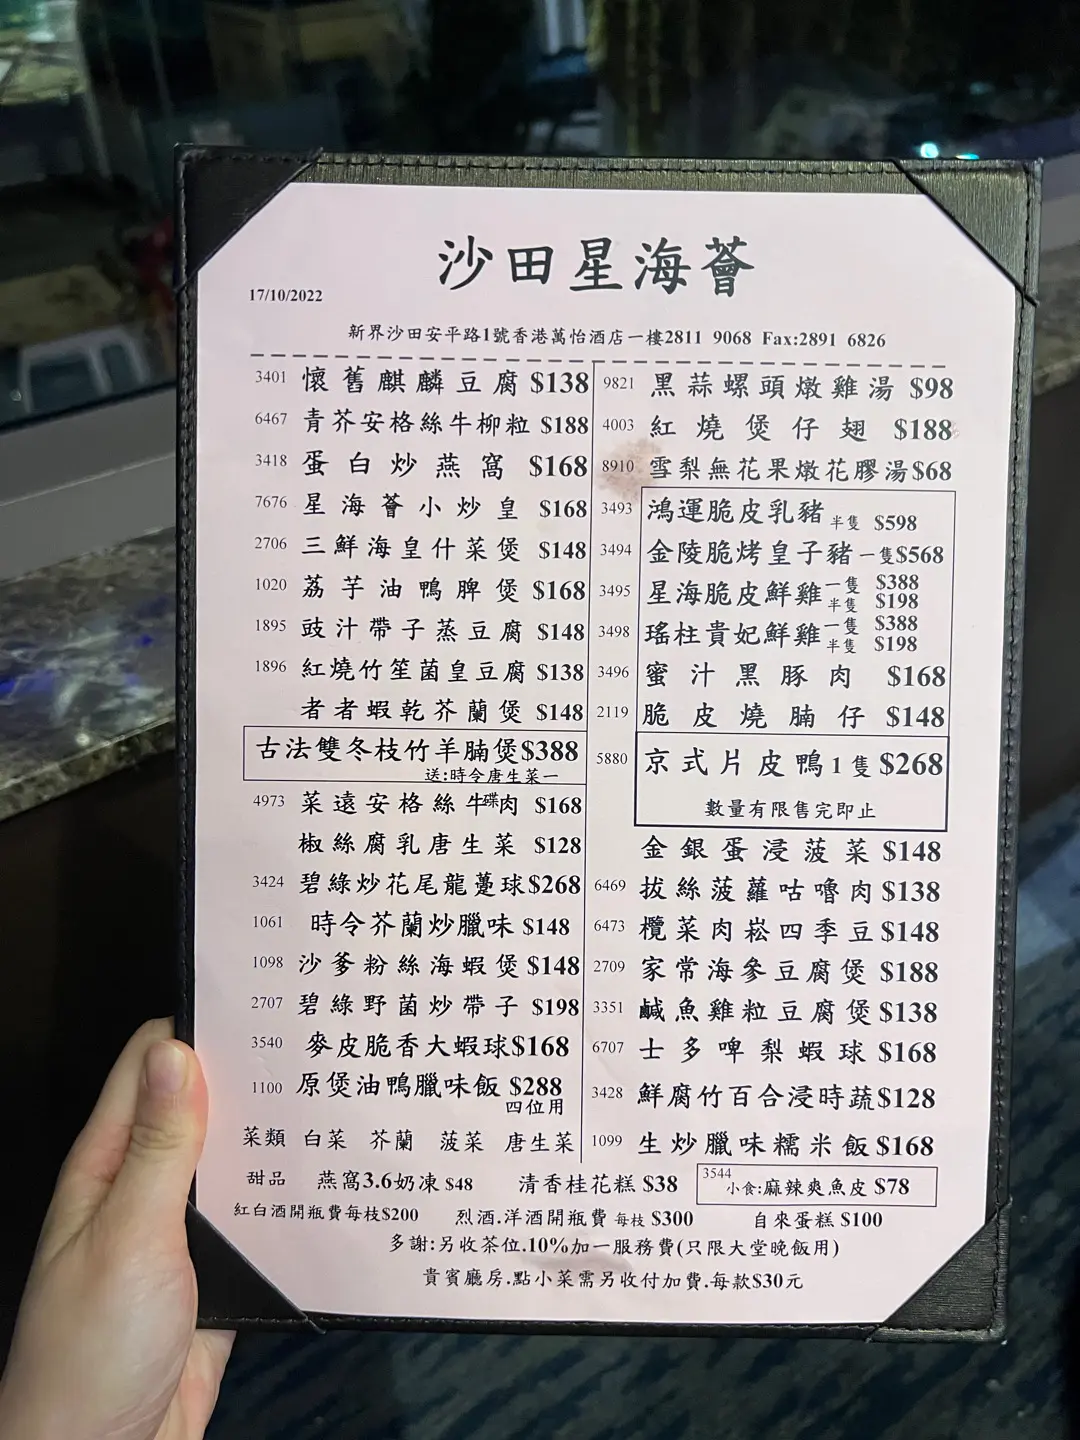 沙田星海薈
17/10/2022
新界沙田安平路1號香港萬怡酒店一樓2811 9068 Fax:2891 6826
3401 懷舊麒麟豆腐 $138
6467 青芥安格絲牛柳粒 $188
3418 蛋白炒燕窩 $168
7676 星海薈小炒皇 $168
2706 三鮮海皇什菜煲 $148
1020 荔芋油鴨脾煲 $168
1895 豉汁帶子蒸豆腐 $148
1896 紅燒竹笙菌皇豆腐 $138
者者蝦乾芥蘭煲 $148
古法雙冬枝竹羊腩煲$388
送:時令唐生菜一
碟
4973 菜遠安格絲牛肉 $168
椒絲腐乳唐生菜 $128
3424 碧綠炒花尾龍躉球$268
1061 時令芥蘭炒臘味 $148
1098 沙爹粉絲海蝦煲 $148
2707 碧綠野菌炒帶子 $198
3540 麥皮脆香大蝦球$168
1100 原煲油鴨臘味飯 $288
四位用
菜類 白菜 芥蘭 菠菜 唐生菜
9821 黑蒜螺頭燉雞湯 $98
4003 紅燒煲仔翅 $188
8910 雪梨無花果燉花膠湯$68
3493 鴻運脆皮乳豬 半隻 $598
3494 金陵脆烤皇子豬 一隻$568
3495 星海脆皮鮮雞 一隻 $388
半隻 $198
3498 瑤柱貴妃鮮雞 一隻 $388
半隻 $198
3496 蜜汁黑豚肉 $168
2119 脆皮燒腩仔 $148
5880 京式片皮鴨1隻 $268
數量有限售完即止
金銀蛋浸菠菜 $148
6469 拔絲菠蘿咕嚕肉 $138
6473 欖菜肉崧四季豆 $148
2709 家常海參豆腐煲 $188
3351 鹹魚雞粒豆腐煲 $138
6707 士多啤梨蝦球 $168
3428 鮮腐竹百合浸時蔬$128
1099 生炒臘味糯米飯 $168
甜品 燕窩3.6奶凍 $48 清香桂花糕 $38
3544
小食:麻辣爽魚皮 $78
紅白酒開瓶費每枝$200 烈酒.洋酒開瓶費 每枝 $300 自來蛋糕 $100
多謝:另收茶位.10%加一服務費(只限大堂晚飯用)
貴賓廳房.點小菜需另收付加費.每款$30元